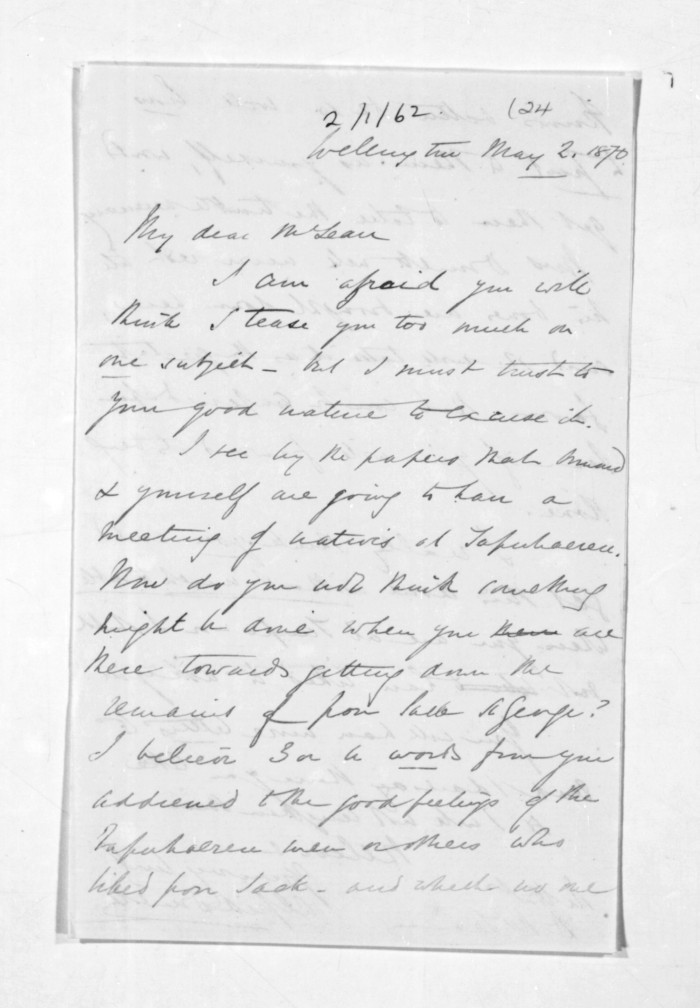 2/1/62 (24
Wellington May 2. 1870
My dear McLean
I am afraid you will
think I tease you too much on
one subject - but I must trust to
your good nature to excuse it.
I see by the papers that Ormond
& yourself are going to have a
meeting of natives at Tapuhaeren.
Now do you not think something
might be done when you them are
there towards getting down the
remains of poor Jack St George?
I believe 3 or 4 words from you
addressed to the good feelings of the
Tapuhaeren men or others who
liked poor Jack - and which no one